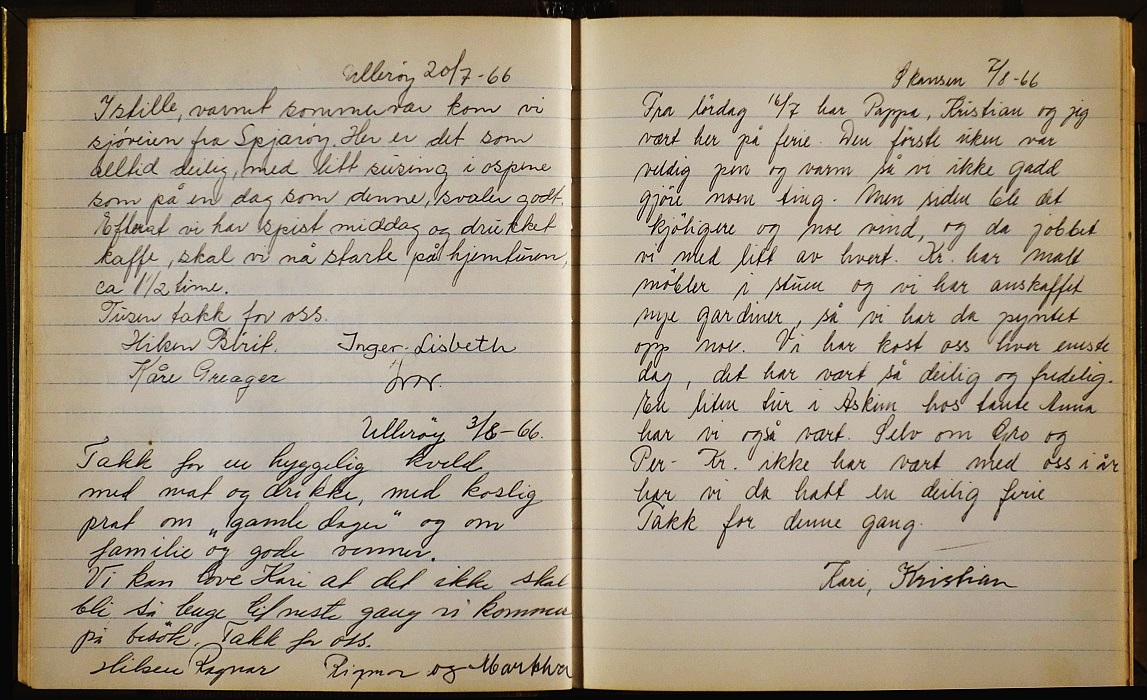 Ullerøy 20/7-66
I stille, varmt sommervær kom vi
sjøveien fra Spjærøy. Her er det som
alltid deilig, med litt susing i ospene
som på en dag som denne, svaler godt.
Efterat vi har spist middag og drukket
kaffe, skal vi nå starte på hjemturen,
ca 1 1/2 time.
Tusen takk for oss.
Hilsen Berit. Inger-Lisbeth
Kåre Greager
Ullerøy 3/8-66.
Takk for en hyggelig kveld,
med mat og drikke, med koslig
prat om „gamle dager" og om
familie og gode venner.
Vi kan love Kari at det ikke skal
bli så lenge til neste gang vi kommer
på besök. Takk for oss.
Hilsen Ragnar Rigmor og
Skansen 7/8-66
Fra lördag 16/7 har Pappa, Kristian og jeg
vært her på ferie. Den förste uken var
veldig pen og varm så vi ikke gadd
gjöre noen ting. Men siden ble det
kjöligere og noe vind, og da jobbet
vi med litt av hvert. Kr. har malt
möbler i stuen og vi har anskaffet
nye gardiner, så vi har da pyntet
opp noe. Vi har kost oss hver eneste
dag, det har vært så deilig og fredelig.
En liten tur i Askim hos tante Anna
har vi også vært. Selv om Gro og
Per-Kr. ikke har vært med oss i år
har vi da hatt en deilig ferie
Takk for denne gang.
Kari, Kristian